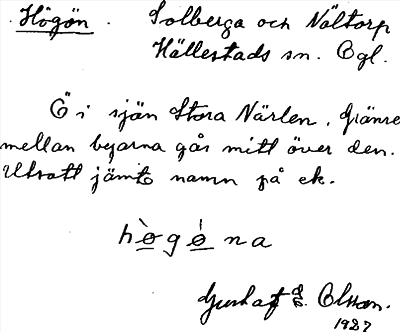 Högön. Solberga och Nältorp
Hällestads sn. Ögl.
Ö i sjön Stora Närlen. Gränsen
mellan byarna går mitt över den.
Utsatt jämte namn på ek.
hògóna
Gustaf Olsson.
1927